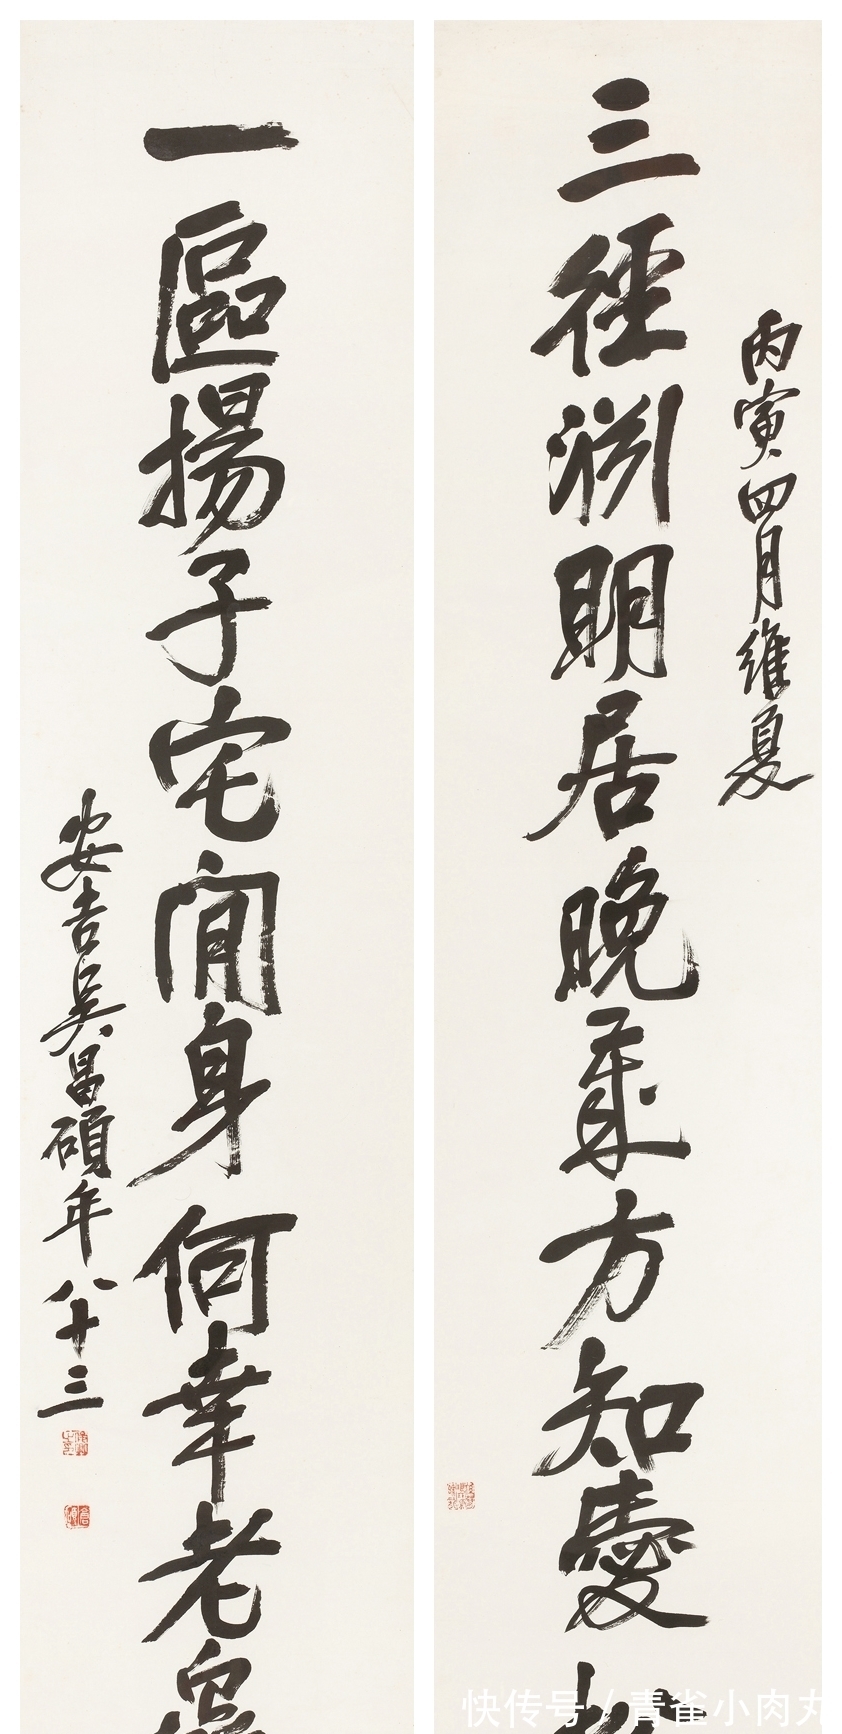 丙寅四月維夏
三徑渊明居晚歲方知愛
一區揚子宅閒身何幸老
安吉吳昌碩年八十三
快传号/青雀小肉丸